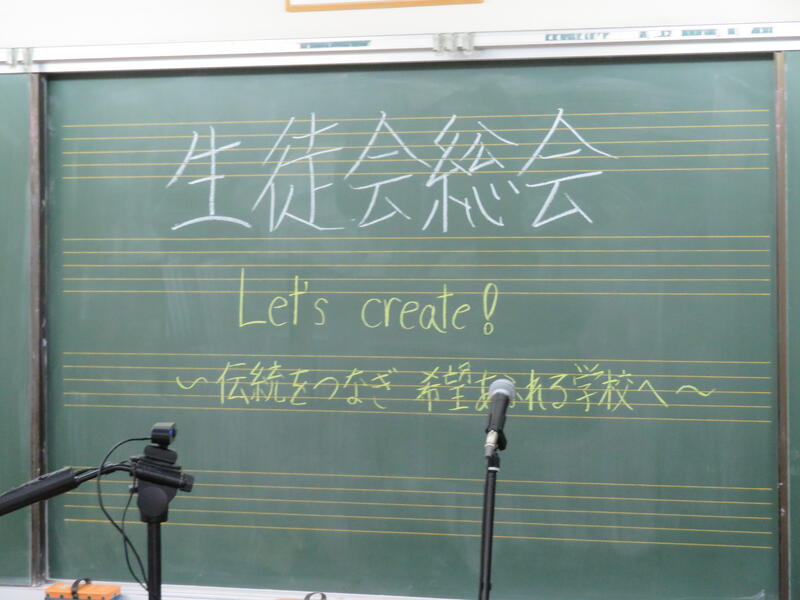 生徒会総会
Let's create!
～伝統をつなぎ 希望あふれる学校へ～